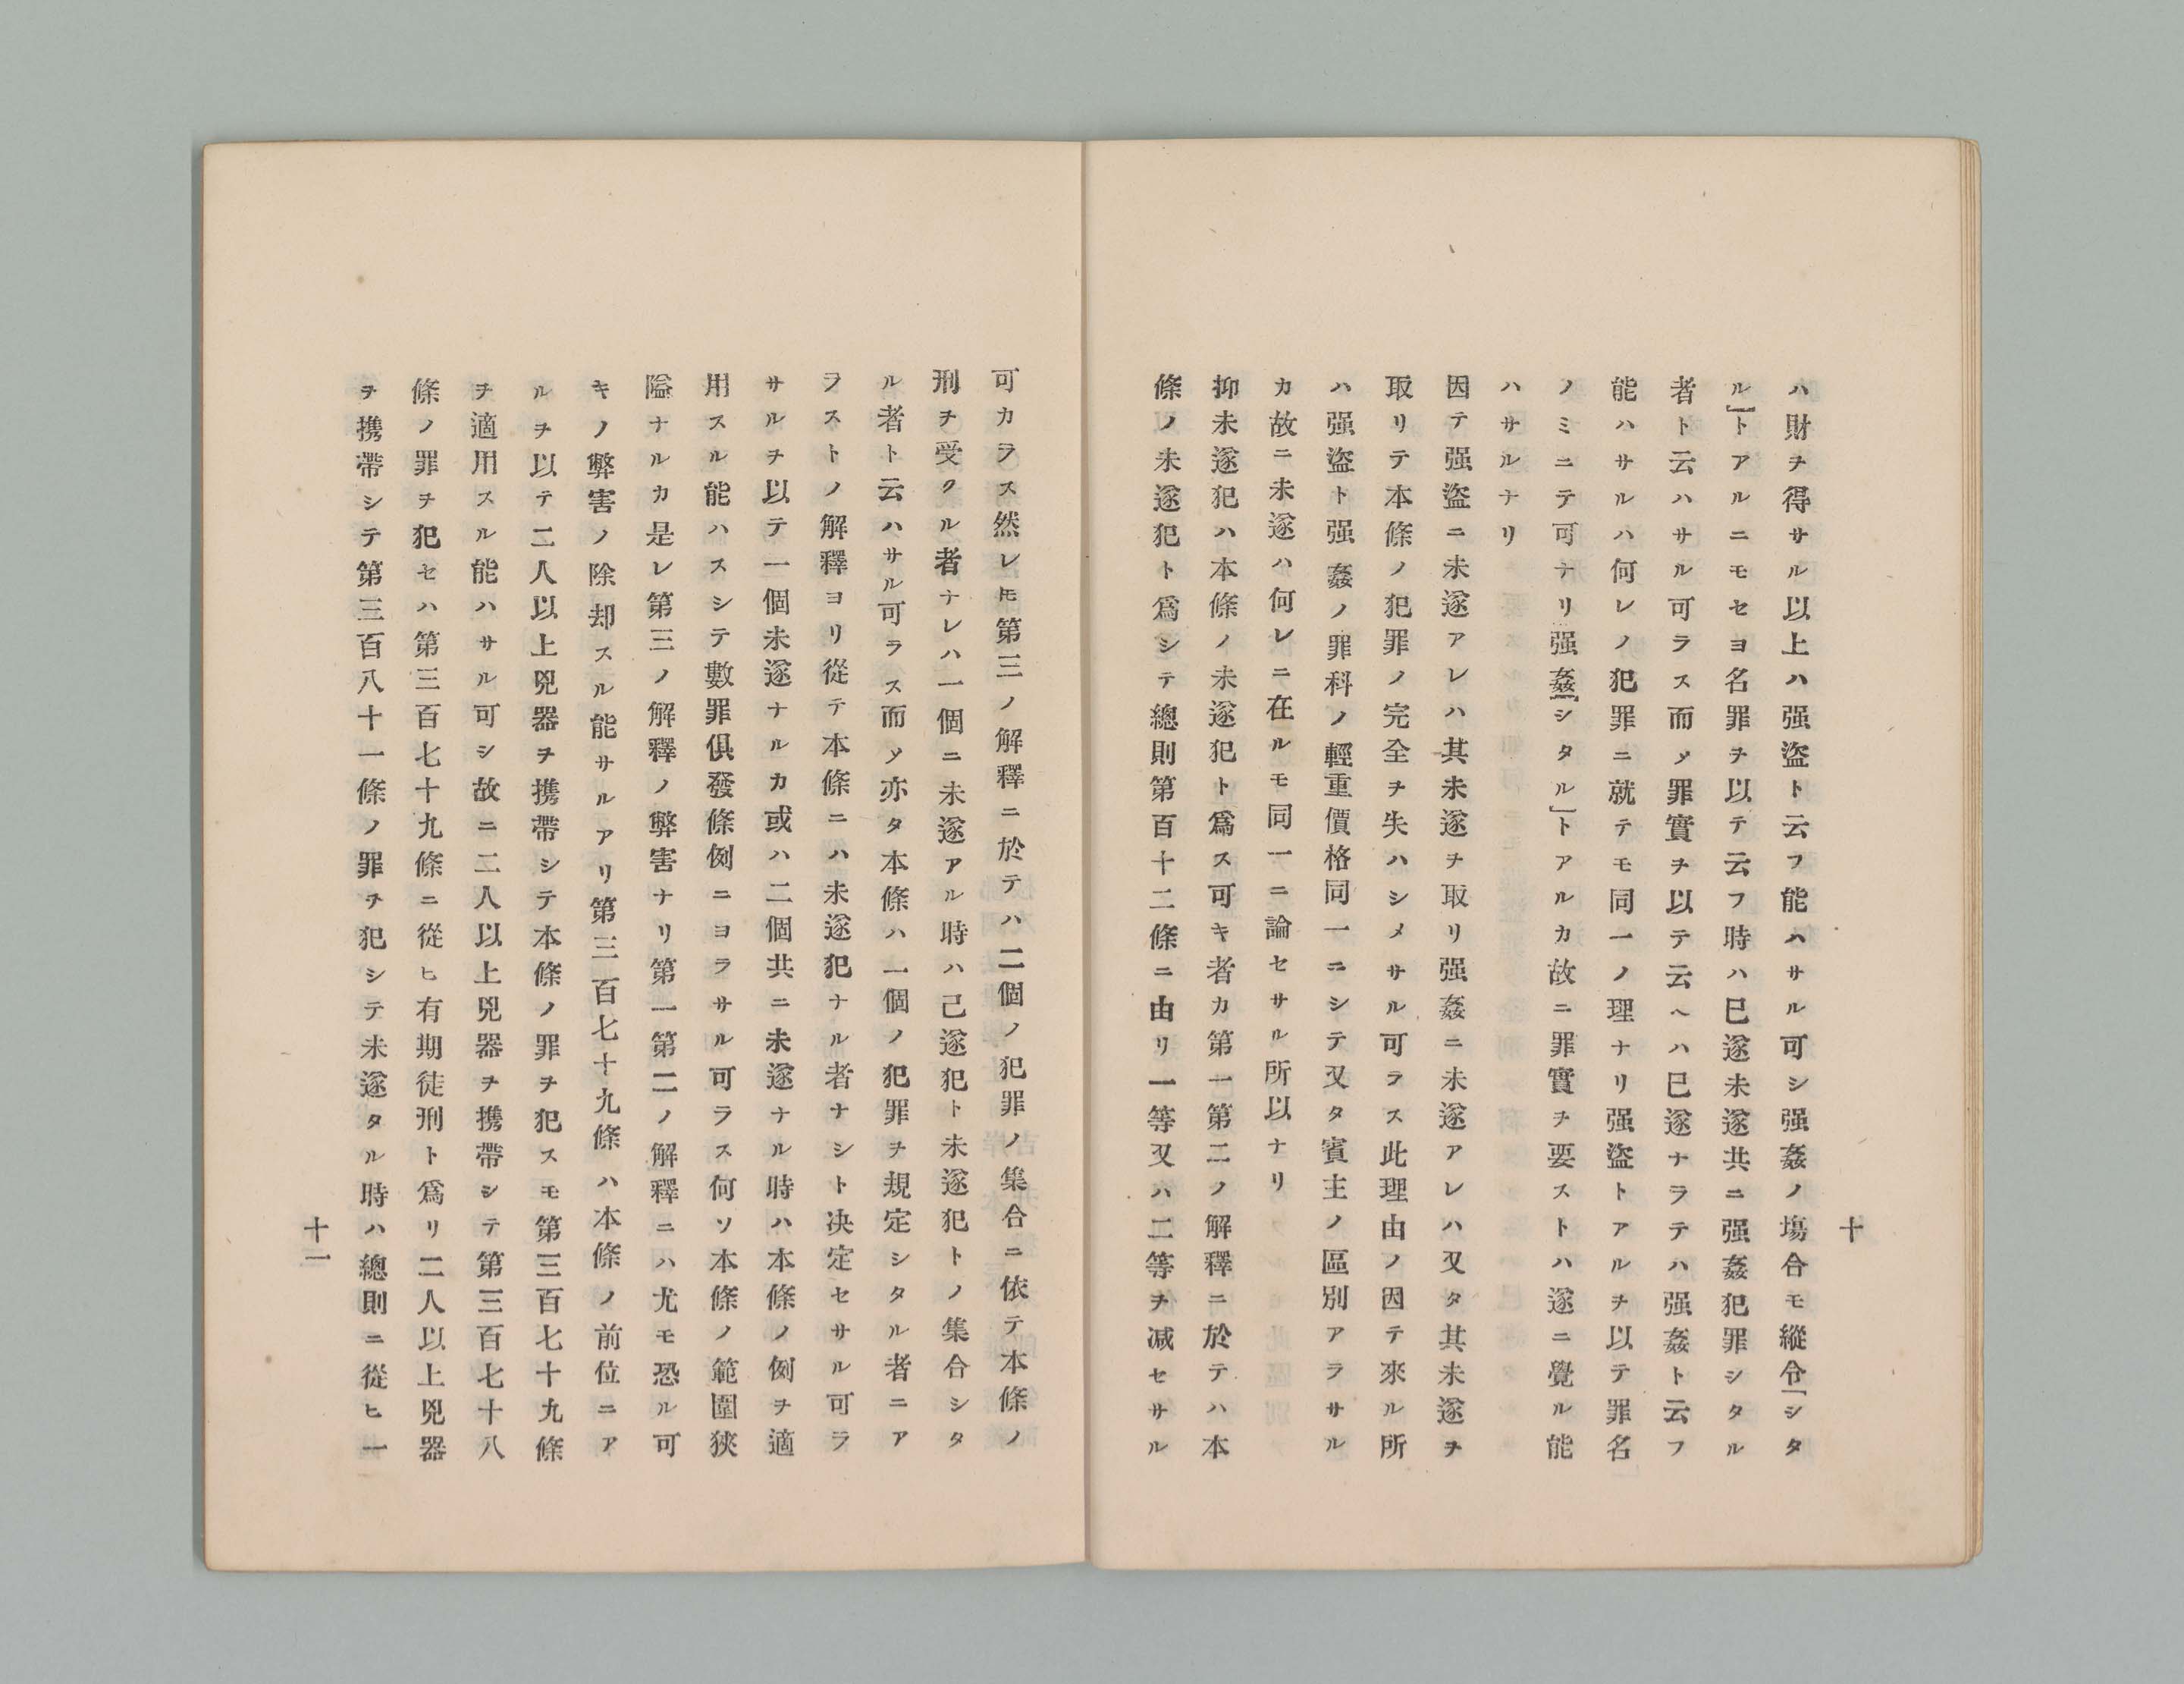 十
ハ財ヲ得サル以上ハ强盜ト云フ能ハサル可シ强姦ノ塲合モ縱令「シタ
ル」トアルニモセヨ名罪ヲ以テ云フ時ハ已遂未遂共ニ强姦犯罪シタル
者ト云ハサル可ラス而メ罪實ヲ以テ云ヘハ已遂ナラテハ强姦ト云フ
能ハサルハ何レノ犯罪ニ就テモ同一ノ理ナリ强盜トアルヲ以テ罪名
ノミニテ可ナリ强姦「シタル」トアルカ故ニ罪實ヲ要ストハ遂ニ覺ル能
ハサルナリ
因テ强盜ニ未遂アレハ其未遂ヲ取リ强姦ニ未遂アレハ又タ其未遂ヲ
取リテ本條ノ犯罪ノ完全ヲ失ハシメサル可ラス此理由ノ因テ來ル所
ハ强盜ト强姦ノ罪科ノ輕重價格同一ニシテ又タ賓主ノ區別アラサル
カ故ニ未遂ハ何レニ在ルモ同一ニ論セサル所以ナリ
抑未遂犯ハ本條ノ未遂犯ト爲ス可キ者カ第一第二ノ解釋ニ於テハ本
條ノ未遂犯ト爲シテ總則第百十二條ニ由リ一等又ハ二等ヲ減セサル
可カラス然レ𪜈第三ノ解釋ニ於テハ二個ノ犯罪ノ集合ニ依テ本條ノ
刑ヲ受クル者ナレハ一個ニ未遂アル時ハ己遂犯ト未遂犯トノ集合シタ
ル者ト云ハサル可ラス而メ亦タ本條ハ一個ノ犯罪ヲ規定シタル者ニア
ラストノ解釋ヨリ從テ本條ニハ未遂犯ナル者ナシト决定セサル可ラ
サルヲ以テ一個未遂ナルカ或ハ二個共ニ未遂ナル時ハ本條ノ例ヲ適
用スル能ハスシテ數罪俱發條例ニヨラサル可ラス何ソ本條ノ範圍狹
隘ナルカ是レ第三ノ解釋ノ弊害ナリ第一第二ノ解釋ニハ尤モ恐ル可
キノ弊害ノ除却スル能サルアリ第三百七十九條ハ本條ノ前位ニア
ルヲ以テ二人以上兇器ヲ携帶シテ本條ノ罪ヲ犯スモ第三百七十九條
ヲ適用スル能ハサル可シ故ニ二人以上兇器ヲ携帶シテ第三百七十八
條ノ罪ヲ犯セハ第三百七十九條ニ從ヒ有期徒刑ト爲リ二人以上兇器
ヲ携帶シテ第三百八十一條ノ罪ヲ犯シテ未遂タル時ハ總則ニ從ヒ一
十一